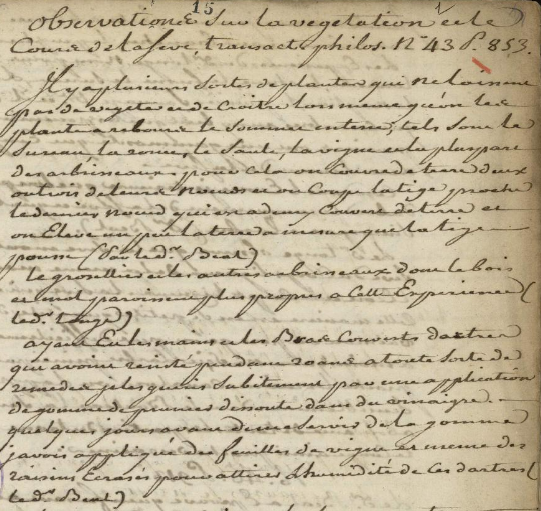 15
observations sur la vegetation et le
Cours de la seve, transact. philos. N° 43 P. 853.
Il y a plusieurs sortes de plantes qui ne laissent
pas de vegeter et de croître lors meme qu'on les
plante a rebours le sommet en terre, tels sont le
sureau la ronce, le saule, la vigne et la pluspart
des arbrisseaux, pour cela on couvre de terre deux
ou trois de leurs noeuds et on coupe la tige proche
le dernier noeud qui en a deux couvert de terre et
on Eleve un peu la terre a mesure que la tige
pousse (Par le dr. Beal)
le groseillier et les autres arbrisseaux dont le bois
est mol paroissent plus propres a Cette Experience (
le dr. tonge)
ayant Eu les mains et les Bras Couverts dartres
qui avoient resisté pendant 20 ans a toute sorte de
remedes je les gueris subitement par une application
de gomme de prunier dissoute dans du vinaigre.
quelques jours avant de me servir de la gomme
javois appliqué des feuilles de vigne et meme des
raisins Ecrasés pour attirer L'humidité de ces dartres (
le dr. Beal)